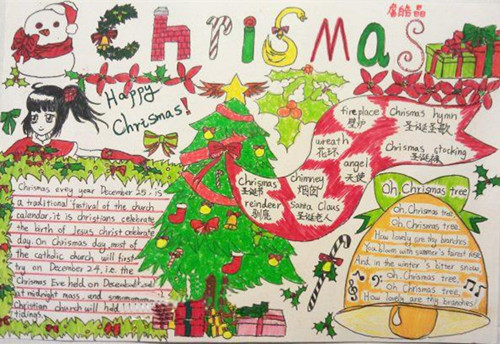 ChriSMas
Happy
Chrismas!
fireplace
壁炉
Chrismas hymn
圣诞圣歌
wreath
花环
angel
天使
Chrismas stocking
圣诞袜
Chrismas
圣诞节
reindeer
驯鹿
chimney
烟囱
Santa Claus
圣诞老人
Chrismas evrey year December 25, is
a traditional festival of the church
calendar.it is christians celebrate
the birth of Jesus christ celebrate
day. On Chrismas day, most of
the catholic church will first
try on December 24, i.e. the
Chrismas Eve held on December
at midnight mass, and
Christian church will held
tidings.
Oh, Chrismas tree
Oh, Chrismas tree
Oh, Chrismas tree
How lovely are thy branches
You bloom with summer's forest rise
And in the winter's bitter snow.
Oh, Chrismas tree,
Oh, Chrismas tree
How lovely are thy branches!